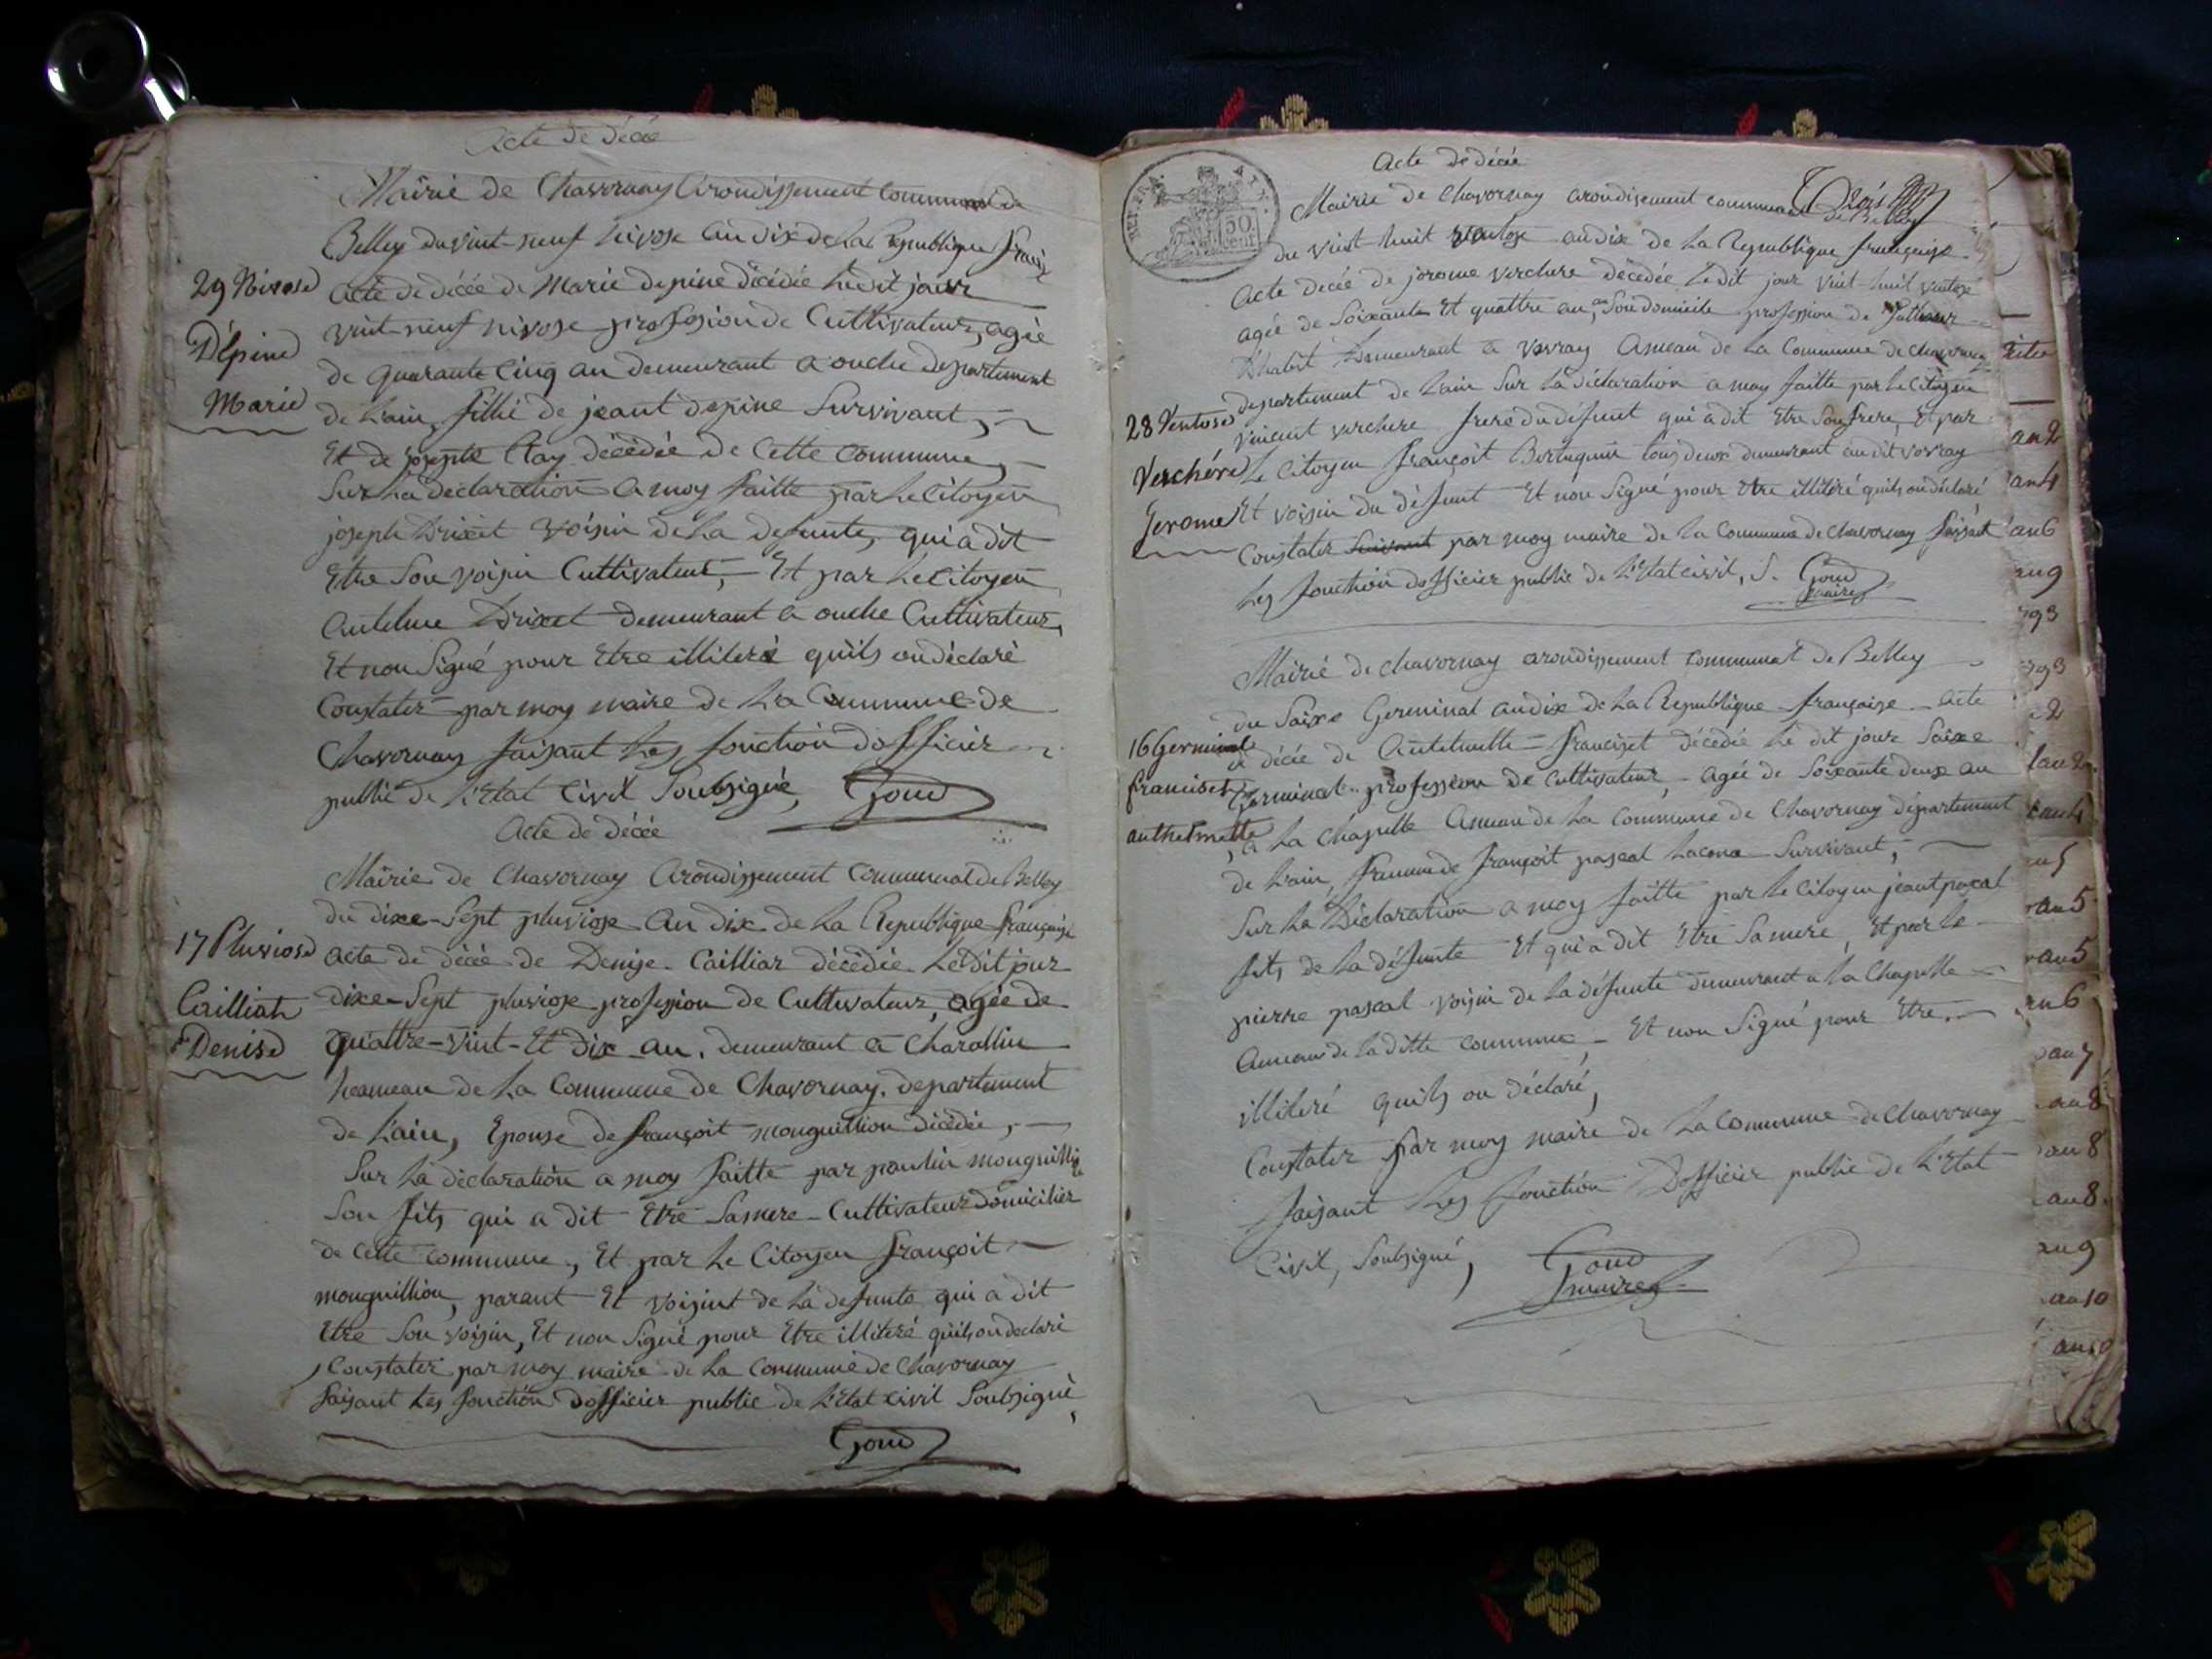 Acte de décée
Mairie de Chavornay Arondissement Communal de
Belley du vint-neuf nivose an dix de la Republique
acte de décée de Marie depine décédée le dit jour
vint-neuf nivose profession de Cultivateur, agée
de quarante cinq an demeurant a ouche departement
de Lain, fillie de jeant depine Survivant,
Et de josepte Clay décédée de Cette Commune,
Sur la déclaration a moy faitte par le Citoyen
joseph voisin de la defunte, qui a dit
Etre Son voisin Cultivateur, Et par le Citoyen
Antelme demeurant a ouche Cultivateur,
Et non Signé pour Etre illiteré quils on déclaré
Constater par moy maire de La Commune de
Chavornay faisant les fonction dofficier
public de L'Etat Civil Soubsigné, Goud
29 Nivose
Dépine
Marie
Acte de décée
Mairie de Chavornay Arondissement Communal de Belley
du dixe-Sept pluviose an dix de La Republique françaixe
acte de décée de Denise Cailliar décédée le dit jour
dixe-Sept pluviose profession de Cultivateur, agée de
quattre-vint-Et dix an, demeurant a Charallin
heameau de La Commune de Chavornay, departement
de L'ain, Epouse de françoit monguillion décédée,
Sur la déclaration a moy faitte par paulin
Son fits qui a dit Etre Samere Cultivateur Domicilier
de Cette Commune, Et par Le Citoyen françoit
monguillion, parant Et voisint de la defunte qui a dit
Etre Son voisin, Et non Signé pour Etre illiteré quils on declaré
Constater par moy maire de La Commune de Chavornay
faisant Les fonction Dofficier public de L'Etat Civil Soubsigné,
Goud
17 Pluviose
Cailliat
Denise
REP. FRA.
50
cent
Acte de décée
Mairie de Chavornay Arondisement communal de Belley
du vint huit ventose an dix de La Republique françaixe
Acte decée de jerome verchere décédée Ledit jour vint-huit
agée de Soixante Et quattre an, Son domicile profession de
D'habit Demeurant a vovray Ameau de La Commune de chavornay
departement de Lain Sur la déclaration a moy faitte par le Citoyen
vincent verchere frere du défunt qui a dit Etre Son frere, Et par
Le Citoyen françoit tous deux demeurant au dit vovray
Et voisin du défunt Et non Signé pour Etre illiteré quils on déclaré
Constater par moy maire de La Commune de Chavornay faisant
Les fonction dofficier public de L'Etat civil, S. Goud
maire
28 Ventose
Verchére
Jerome
Mairie de chavornay arondissement Communal de Belley
du Saixe Germinal an dix de La Republique françaixe acte
de décée de Antelmette francizet décédée Le dit jour Saixe
Germinal profession de Cultivateur, agée de Soixante deux an
a La Chapelle Ameau de La Commune de Chavornay département
de Lain, femme de françoit pascal Survivant,
Sur La Déclaration a moy faitte par le Citoyen jeant pascal
fits de La défunte Et qui a dit Etre Samere, Et par le
pierre pascal voisin de La défunte demeurant a La Chapelle
Ameau de La ditte Commune, Et non Signé pour Etre
illiteré quils on déclaré,
Constater par moy maire de La Commune de Chavornay
faisant Les fonction Dofficier public de L'Etat
Civil, Soubsigné, Goud
maire
16 Germinal
franciset
anthelmette
an 2
an 4
an 6
an 9
an 5
an 5
an 6
an 7
an 8
an 8
an 8
an 9
an 10